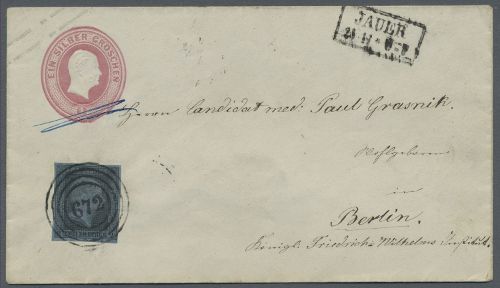 EIN SILBER GROSCHEN
JAUER
Herrn Candidat med: Paul Grasnik.
Wohlgeboren
in
672
Berlin.
Königl. Friedrich-Wilhelms Institut.